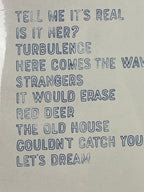 TELL ME IT'S REAL
IS IT HER?
TURBULENCE
HERE COMES THE WAV
STRANGERS
IT WOULD ERASE
RED DEER
THE OLD HOUSE
COULDN'T CATCH YOU
LET'S DREAM